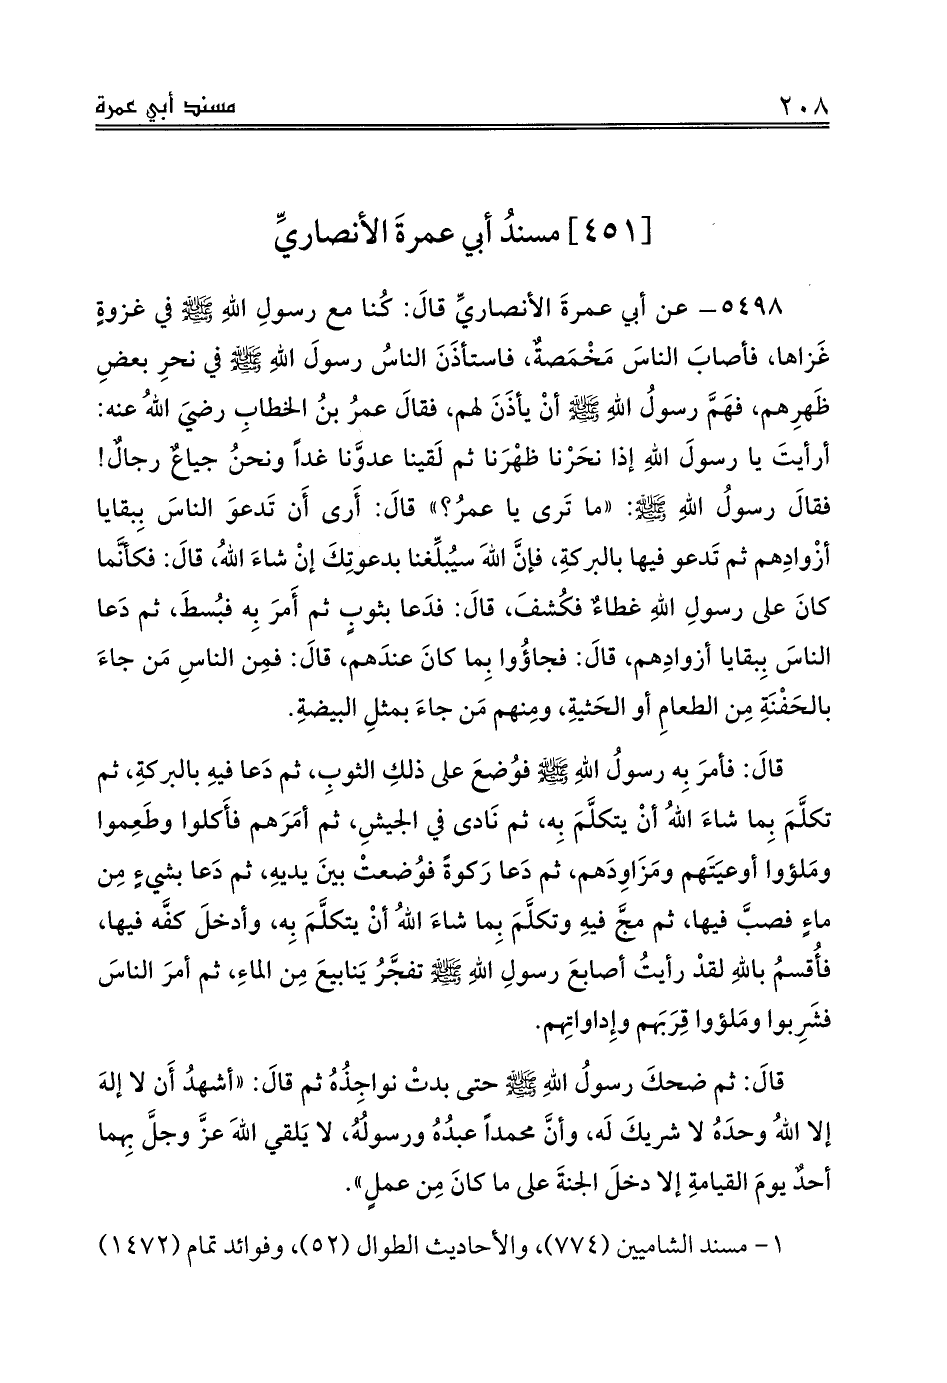 ٢٠٨ مسند أبي عمرة
[٤٥١] مسندُ أبي عمرةَ الأنصاريِّ
٥٤٩٨- عن أبي عمرةَ الأنصاريِّ قالَ: كُنا مع رسولِ اللهِ ﷺ في غزوةٍ
غَزاها، فأصابَ الناسَ مَخْمَصةٌ، فاستأذَنَ الناسُ رسولَ اللهِ ﷺ في نحرِ بعضِ
ظَهرِهم، فهَمَّ رسولُ اللهِ ﷺ أنْ يأذَنَ لهم، فقالَ عمرُ بنُ الخطابِ رضيَ اللهُ عنه:
أرأيتَ يا رسولَ اللهِ إذا نحَرْنا ظهْرَنا ثم لَقينا عدوَّنا غداً ونحنُ جياعٌ رجالٌ!
فقالَ رسولُ اللهِ ﷺ: «ما تَرى يا عمرُ؟» قالَ: أَرى أَن تَدعوَ الناسَ ببقايا
أزْوادِهم ثم تَدعو فيها بالبركةِ، فإنَّ اللهَ سيُبلِّغنا بدعوتِكَ إنْ شاءَ اللهُ، قالَ: فكأنَّما
كانَ على رسولِ اللهِ غطاءٌ فكُشفَ، قالَ: فدَعا بثوبٍ ثم أَمرَ به فبُسطَ، ثم دَعا
الناسَ بِبقايا أزوادِهم، قالَ: فجاؤُوا بِما كانَ عندَهم، قالَ: فمِن الناسِ مَن جاءَ
بالحَفْنَةِ مِن الطعامِ أو الحَثيةِ، ومِنهم مَن جاءَ بمثلِ البيضةِ.
قالَ: فأمرَ بِه رسولُ اللهِ ﷺ فوُضعَ على ذلكِ الثوبِ، ثم دَعا فيهِ بالبركةِ، ثم
تكلَّمَ بِما شاءَ اللهُ أنْ يتكلَّمَ به، ثم نَادى في الجيشِ، ثم أمَرَهم فأَكلوا وطَعِموا
ومَلؤوا أوعيَتَهم ومَزَاوِدَهم، ثم دَعا رَكوةً فوُضعتْ بينَ يديهِ، ثم دَعا بشيءٍ مِن
ماءٍ فصبَّ فيها، ثم مجَّ فيهِ وتكلَّمَ بِما شاءَ اللهُ أنْ يتكلَّمَ به، وأدخلَ كفَّه فيها،
فأُقسمُ باللهِ لقدْ رأيتُ أصابعَ رسولِ اللهِ ﷺ تفجَّرُ يَنابيعَ مِن الماءِ، ثم أمرَ الناسَ
فشَرِبوا ومَلؤوا قِرَبَهم وإداواتِهم.
قالَ: ثم ضحكَ رسولُ اللهِ ﷺ حتى بدتْ نواجِذُهُ ثم قالَ: «أشهدُ أَن لا إلهَ
إلا اللهُ وحدَهُ لا شريكَ لَه، وأنَّ محمداً عبدُهُ ورسولُهُ، لا يَلقي اللهَ عزَّ وجلَّ بِهما
أحدٌ يومَ القيامةِ إلا دخلَ الجنةَ على ما كانَ مِن عملٍ».
١- مسند الشاميين (٧٧٤)، والأحاديث الطوال (٥٢)، وفوائد تمام (١٤٧٢)